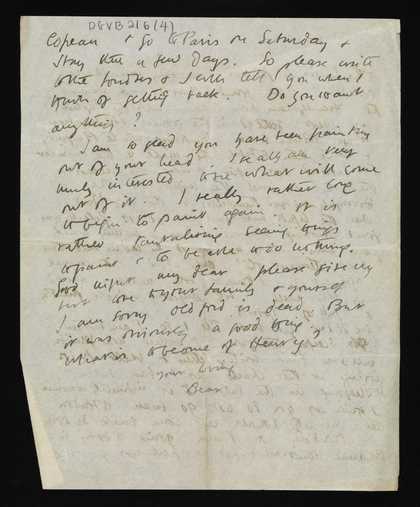 DGVB 216 (4)
Copeau & Go to Paris on Saturday &
stay there a few days. So please write
to the London & I will tell you when I
think of getting back. Do you want
anything?
I am so glad you have been painting
out of your head. I really am very
much interested to see what will come
out of it. I really rather long
to begin to paint again. It is
rather tantalising seeing things
to paint & to be able to do nothing.
Good night my dear please give my
love to your family & yourself
I am sorry old is dead. But
it was a good thing,
What is to become of Henry?
your loving
Bear